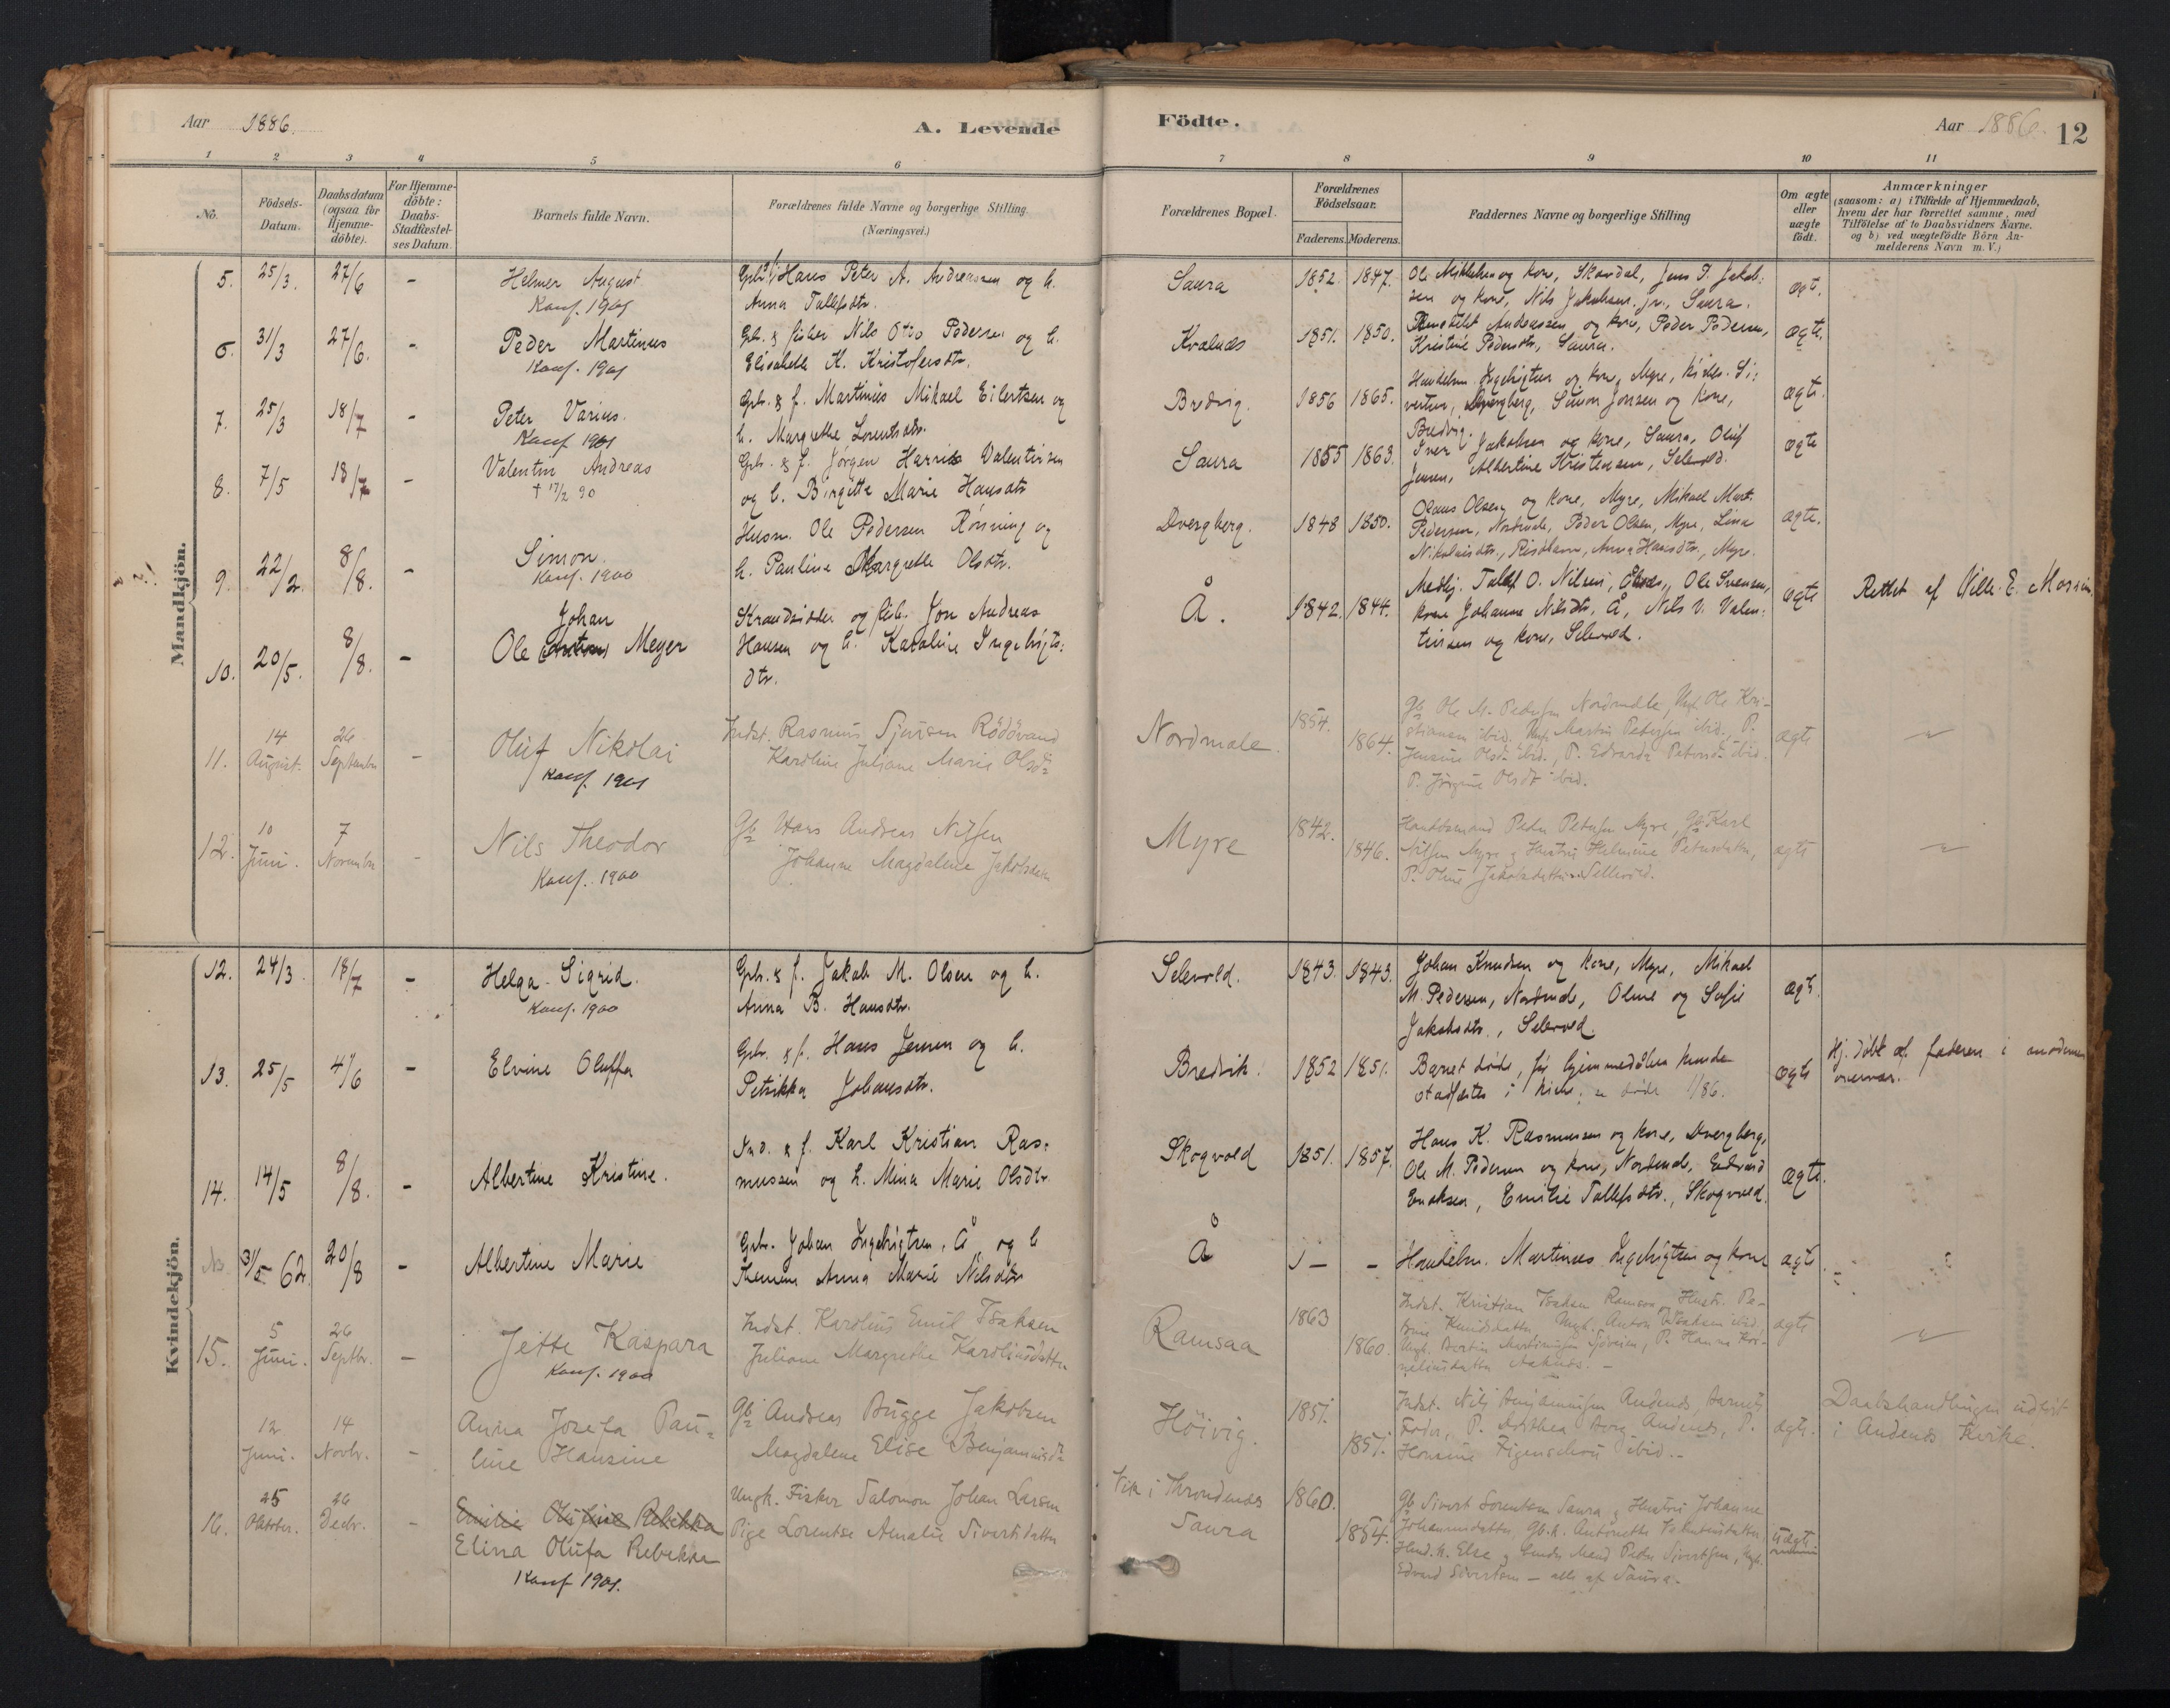 Aar 1886.
A. Levende
Födte.
Aar 1886.
12
1 2 3 4 5 6 7 8 9 10 11
No.
Födsels-Datum.
Daabsdatum (ogsaa for Hjemme-döbte).
For Hjemme-döbte: Daabs-Stadfæstel-ses Datum.
Barnets fulde Navn.
Forældrenes fulde Navne og borgerlige Stilling (Næringsvei.)
Forældrenes Bopæl.
Forældrenes Födselsaar.
Faderens. Moderens.
Faddernes Navne og borgerlige Stilling
Om ægte eller uægte födt.
Anmærkninger
(saasom: a) i Tilfælde af Hjemmedaab,
hvem der har forrettet samme, med
Tilföielse af to Daabsvidners Navne.
og b) ved uægtefödte Börn An-
melderens Navn m.V.)
Mandkjön.
5. 25/3. 27/6 - Helmer August
Konf. 1901
Hans Peter A. Andreassen og h.
Anna Tollefsdtr.
Saura 1852. 1847.
og kone, Skavdal, Jens P. Jakob-
sen og kone, Nils Jakobsen jr., Saura.
ægt.
6. 31/3 27/6. - Peder Martinus
Konf. 1901
Gb. & fisker Nils Otto Pedersen og h.
Elisabeth K. Kristofersdtr.
Kvalnæs 1851. 1850.
Andreassen og kone, Peder Pedersen,
Kristine Pedersdtr., Saura.
ægte.
7. 25/3 18/7 - Peter Varius.
Konf 1901
Grb. & f. Martinus Mikael Eilertsen og
h. Margrethe Lorentsdtr.
Bredvig. 1856 1865.
Handelsm. Ingebrigtsen og kone, Myre, Si-
vertsen, Dvergberg, Simon Jonsen og kone,
Bredvig.
ægte.
8. 7/5 18/7 - Valentin Andreas
† 17/2 90
Grb. & f. Jörgen Harris Valentinsen
og h. Birgitte Marie Hansdtr
Saura 1855 1863.
Iver Jakobsen og kone, Saura, Oluf
Jensen, Albertine Kristensen, Selevold.
ægte
9. 22/2. 8/8. - Simon.
Konf. 1900
Husm. Ole Pedersen Rönning og
h. Pauline Margrethe Olsdtr.
Dvergberg. 1848 1850.
Olaus Olsen og kone, Myre, Mikael Mart.
Pedersen, Nordmele, Peder Olsen, Myre, Lina
Nikolaisdtr., Risöhavn, Anna Hansdtr., Myre.
ægte.
10. 20/5. 8/8. - Johan
Ole Meyer
Strandsidder og fisk. Jon Andreas
Hansen og h. Karoline Ingebrigts-
dtr.
Å. 1842. 1844.
O. Nilsen, Ole Svensen,
kone Johanna Nilsdtr, Å, Nils V. Valen-
tinsen og kone, Selevold.
ægte
Rettet af Ville. E. 
11. 14 August. 26 September - Oluf Nikolai
Konf. 1901
Indst. Rasmus Sjursen Rödövand
Karoline Juliane Marie Olsdt
Nordmele. 1854. 1864.
Gb. Ole M. Pedersen Nordmele, Ungk. Ole Kri-
stiansen ibid. Ungk. Martin Petersen ibid., P.
Jensine Olsdt ibid., P. Edvarda Petersdt ibid.
P. Jörgine Olsdt ibid.
ægte
12. 10 Juni. 7 November - Nils Theodor
Konf. 1900
Gb. Hans Andreas Nilsen
Johanne Magdalene Jakobsdatter
Myre 1842. 1846.
Handelsmand Peder Petersen Myre, Gb. Karl
Nilsen Myre & Hustru Helmine Petersdatter,
P. Oline Jakobsdatter Sellevold.
ægte
Kvindekjön.
12. 24/3. 18/7 - Helga Sigrid.
Konf. 1900
Grb. & f. Jakob M. Olsen og h.
Anna B. Hansdtr.
Selevold. 1843. 1843.
Johan Knudsen og kone, Myre, Mikael
M. Pedersen, Nordmele, Oline og Sofie
Jakobsdtr., Selevold.
ægte.
13. 25/5 4/6 - Elvine Oluffa
Grb. & f. Hans Jensen og h.
Petrikka Johansdtr.
Bredvik. 1852 1851.
Barnet döde, för hjemmedåben kunde
stadfæstes i kirken. döde /86.
ægte
Hj. döbt af faderen i moderens
overvær.
14. 14/5 8/8. - Albertine Kristine.
Ind. & f. Karl Kristian Ras-
mussen og h. Mina Marie Olsdtr.
Skogvold 1851. 1857.
Hans K. Rasmussen og kone, Dvergberg,
Ole M. Pedersen og kone, Nordmele, Edvard
Enoksen, Emilie Tollefsdtr., Skogvold.
ægte.
31/5 62. 20/8 - Albertine Marie
Grb. Johan Ingebrigtsen, Å, og h
Anna Marie Nilsdtr
Å - -
Handelsm. Martinus Ingebrigtsen og kone
ægte
15. 5 Juni. 26 Septbr. - Jette Kaspara
Konf. 1900
Indst. Karolius Emil Isaksen
Juliane Margrethe Karoliusdatter
Ramsaa 1863 1860.
Indst. Kristian Isaksen Ramsaa, Hustr. Pe-
trine Knudsdatter Ungk. Anton Isaksen ibid,
Ungk. Bertin Martinussen Sjöveien, P. Hanna Kor-
neliusdatter Aaknes. -
ægte
12 Juni. 14 Novbr. - Anna Josefa Pau-
line Hansine
Gb. Andreas Bugge Jakobsen
Magdalene Elise Benjaminsdt
Höivig. 1851. 1857.
Indst. Nils Benjaminsen Andenes, Barnets
Fader, P. Dorthea Borg Andenes, P.
Hansine Figenschou ibid. -
ægte.
Daabshandlingen udfört
i Andenes Kirke.
16. 25 Oktober. 26 Decbr. - Emilie Olufine Rebekka
Elina Olufa Rebekka
Konf 1901.
Ungk. Fisker Salomon Johan Larsen
Pige Lorentse Amalie Sivertsdatter
Vik i Throndenes 1860.
Saura 1854.
Gb. Sivert Lorentsen Saura & Hustru Johanne
Johannesdatter, Gb.k. Antonette Valentinsdatter
Hand.k. Else & hendes Mand Peder Sivertsen, Ungk.
Edvard Sivertsen - alle af Saura. -
Uægte